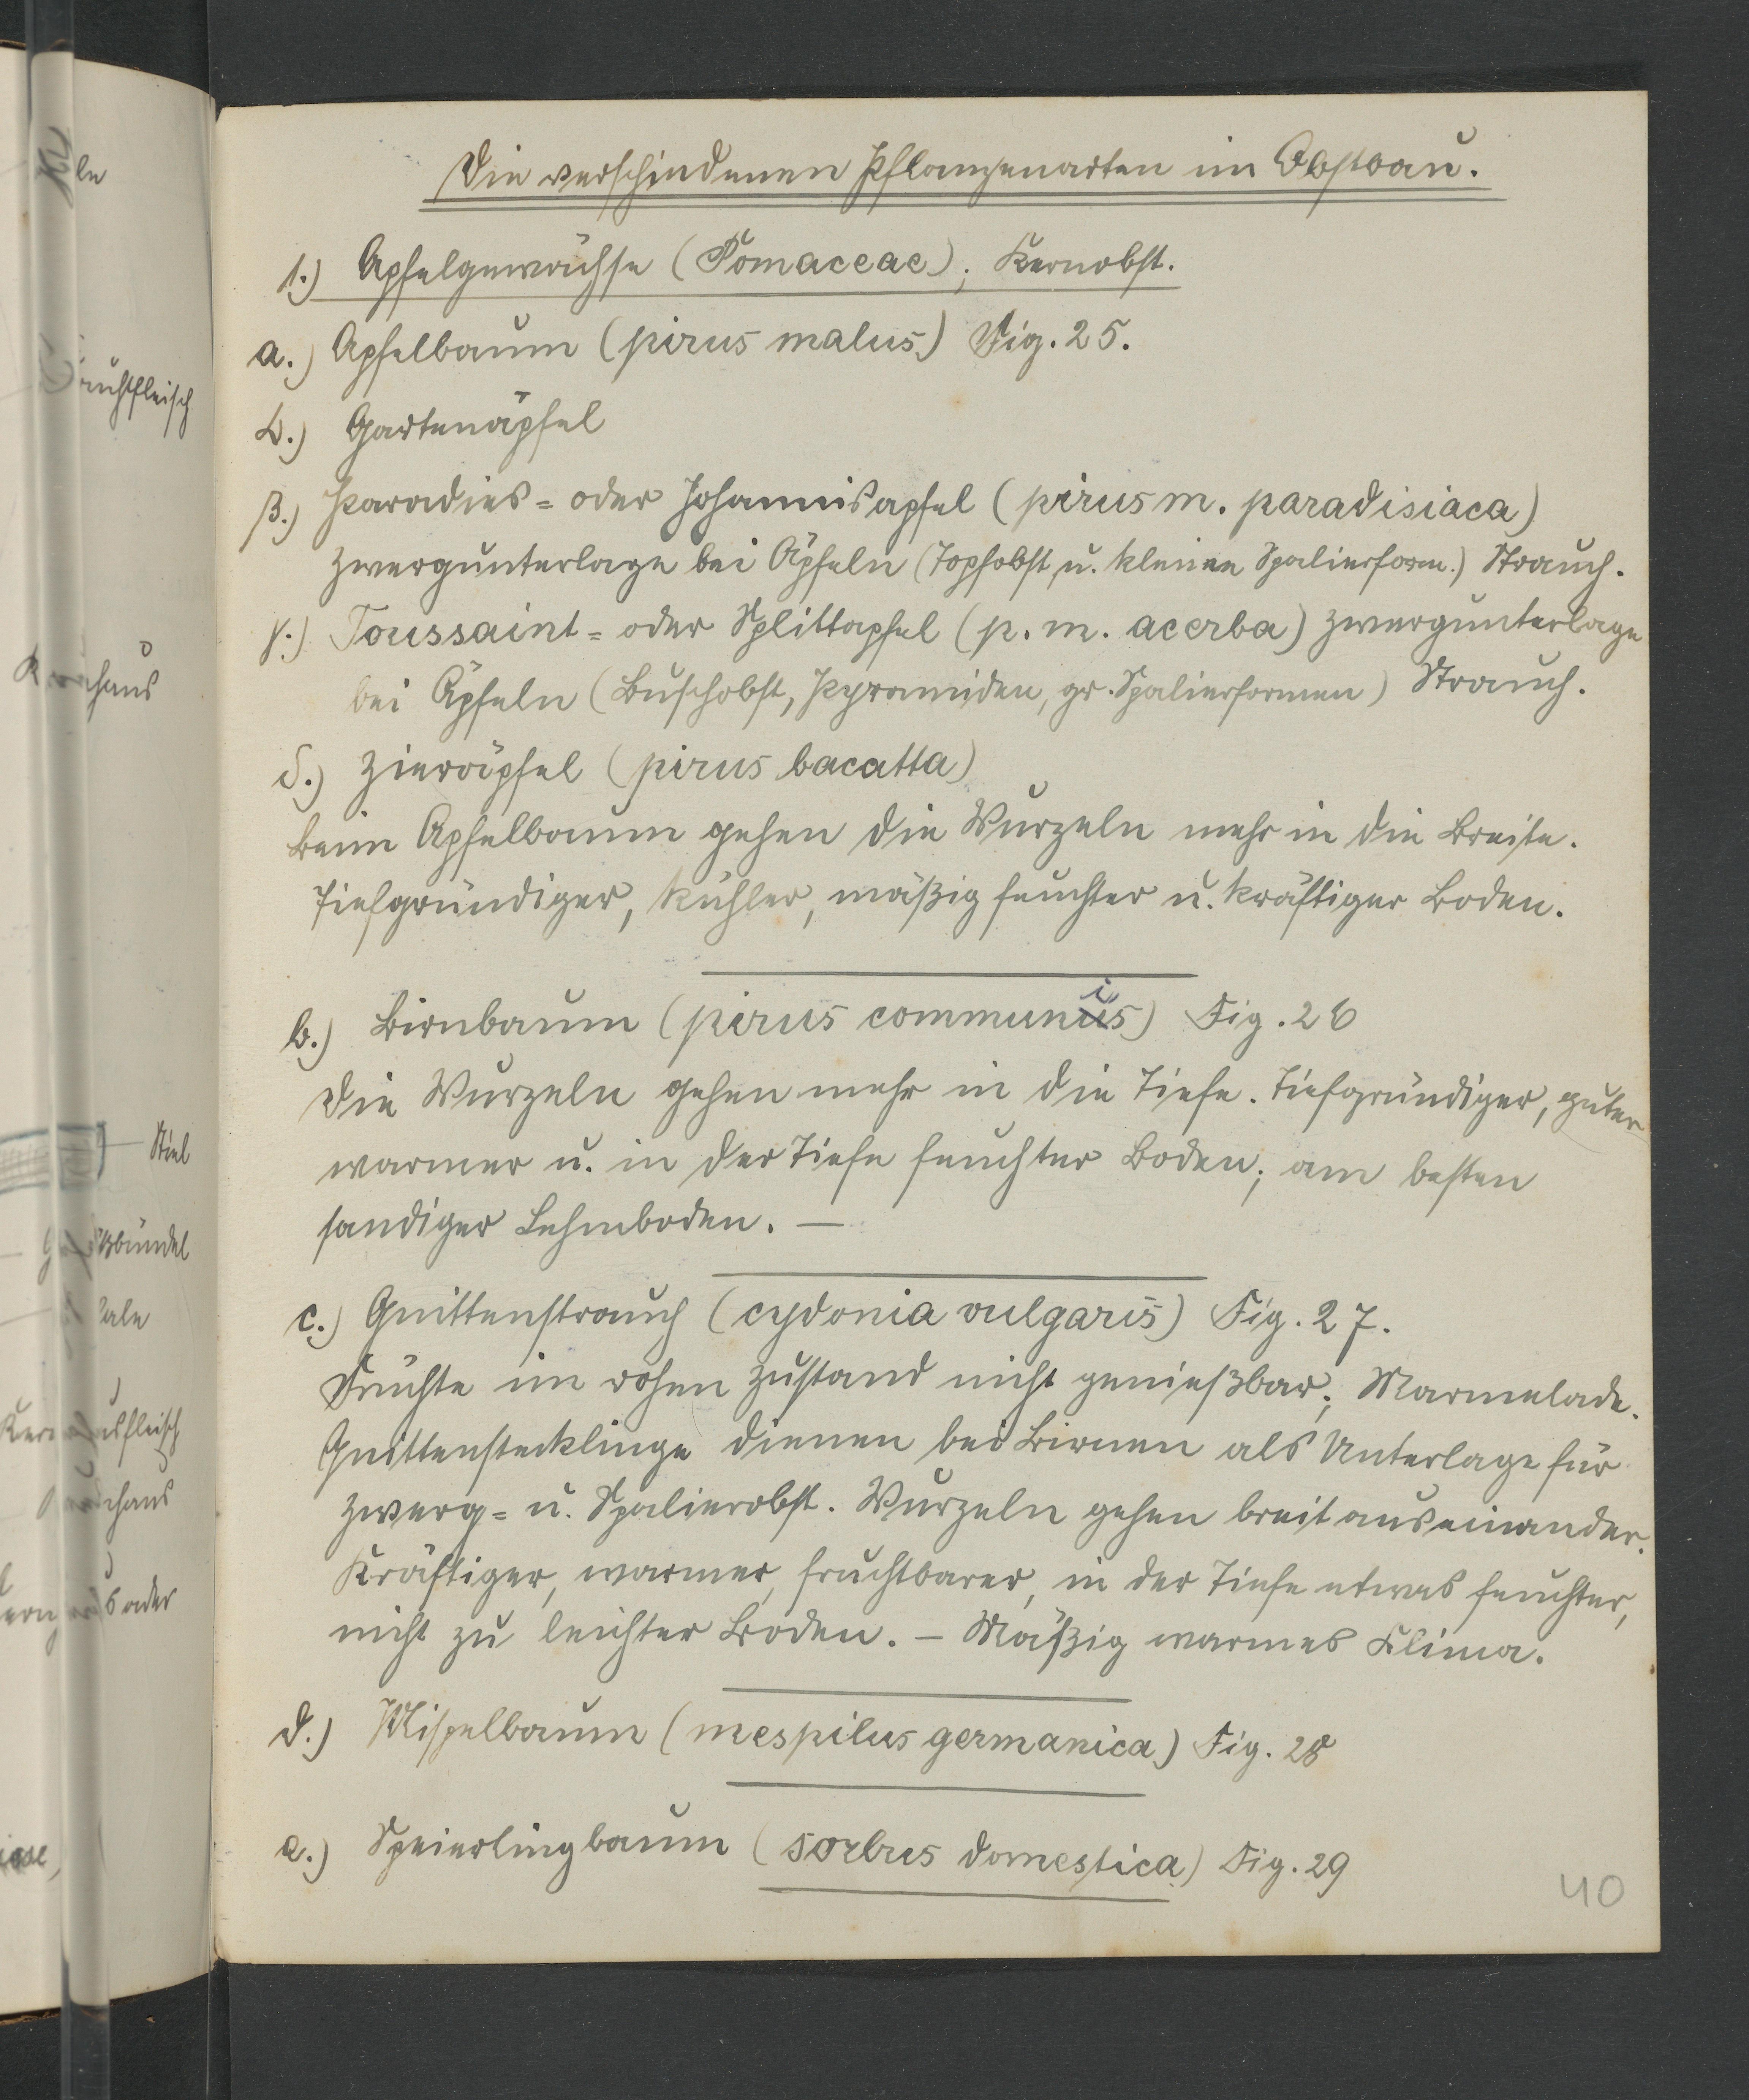 Die verschiedenen Pflanzenarten im Obstbau.
1.) Apfelgewächse (Pomaceae); Kernobst.
a.) Apfelbaum (pirus malus) Fig. 25.
α.) Gartenäpfel
β.) Paradies- oder Johannisapfel (pirus m. paradisiaca)
Zwergunterlage bei Äpfeln (Topfobst u. kleinen Spalierform.) Strauch.
γ.) Toussaint- oder Splittapfel (p. m. acerba) Zwergunterlage
bei Äpfeln (Buschobst, Pyramiden, gr. Spalierformen) Strauch.
δ.) Zieräpfel (pirus bacatta)
Beim Apfelbaum gehen die Wurzeln mehr in die Breite.
Tiefgründiger, kühler, mäßig feuchter u. kräftiger Boden.
b.) Birnbaum (pirus communis) Fig. 26
Die Wurzeln gehen mehr in die Tiefe. Tiefgründiger, guter
warmer u. in der Tiefe feuchter Boden; am besten
sandiger Lehmboden. —
c.) Quittenstrauch (cydonia vulgaris) Fig. 27.
Früchte im rohen Zustand nicht genießbar; Marmelade.
Quittenstecklinge dienen bei Birnen als Unterlage für
Zwerg- u. Spalierobst. Wurzeln gehen breit auseinander.
Kräftiger, warmer, fruchtbarer, in der Tiefe etwas feuchter,
nicht zu leichter Boden. — Mäßig warmes Klima.
d.) Mispelbaum (mespilus germanica) Fig. 28
e.) Speierlingbaum (sorbus domestica) Fig. 29
40
Stiel